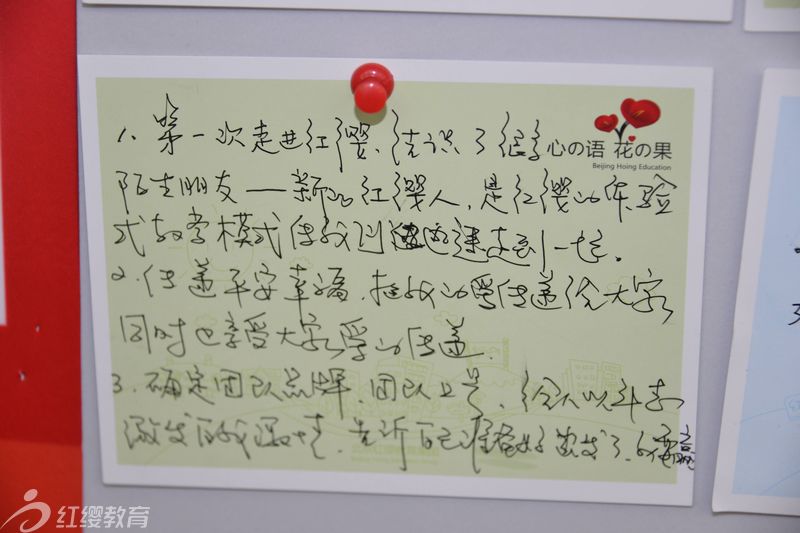 心の语 花の果
Beijing Hoing Education
1. 第一次走进红缨、结识了很多
陌生朋友——新的红缨人，是红缨的体验
式教学模式使我们迅速走到一起。
2. 传递平安幸福，把我的爱传递给大家
同时也享受大家爱的传递。
3. 确定团队品牌，团队口号，给人以斗志
激发自我激情，告诉自己准备好出发了
红缨教育